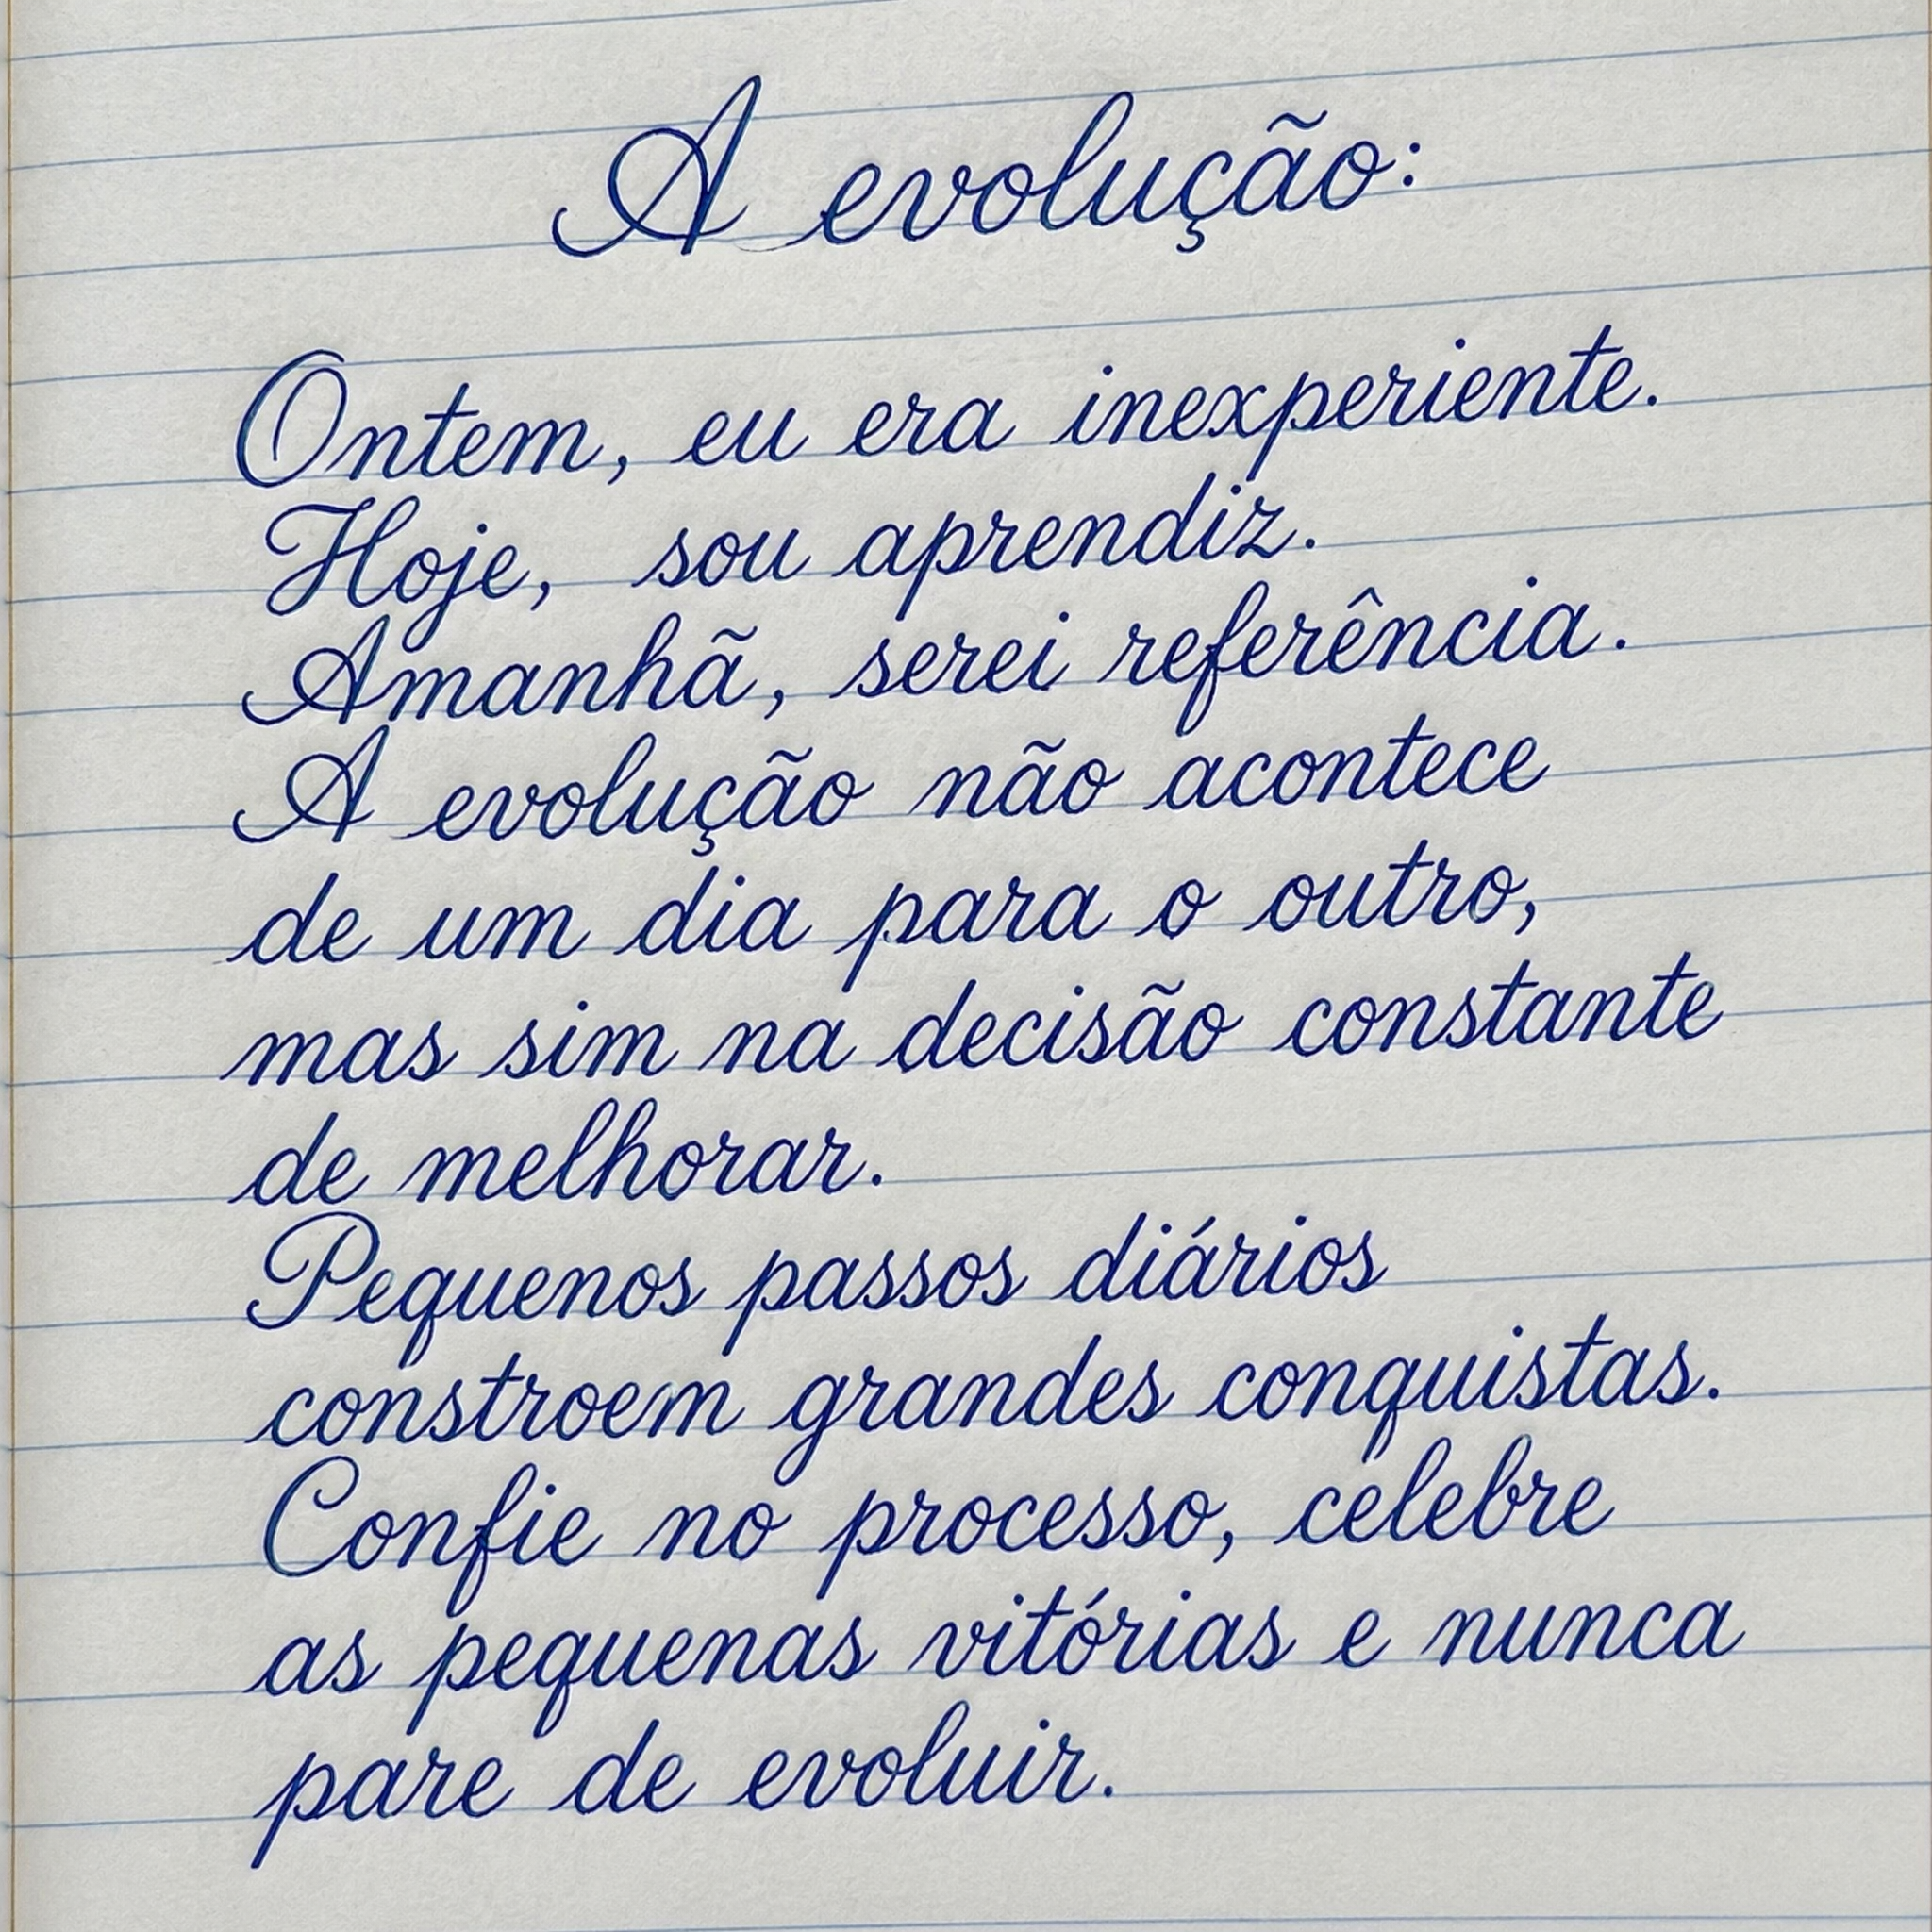 A evolução:
Ontem, eu era inexperiente.
Hoje, sou aprendiz.
Amanhã, serei referência.
A evolução não acontece
de um dia para o outro,
mas sim na decisão constante
de melhorar.
Pequenos passos diários
constroem grandes conquistas.
Confie no processo, celebre
as pequenas vitórias e nunca
pare de evoluir.